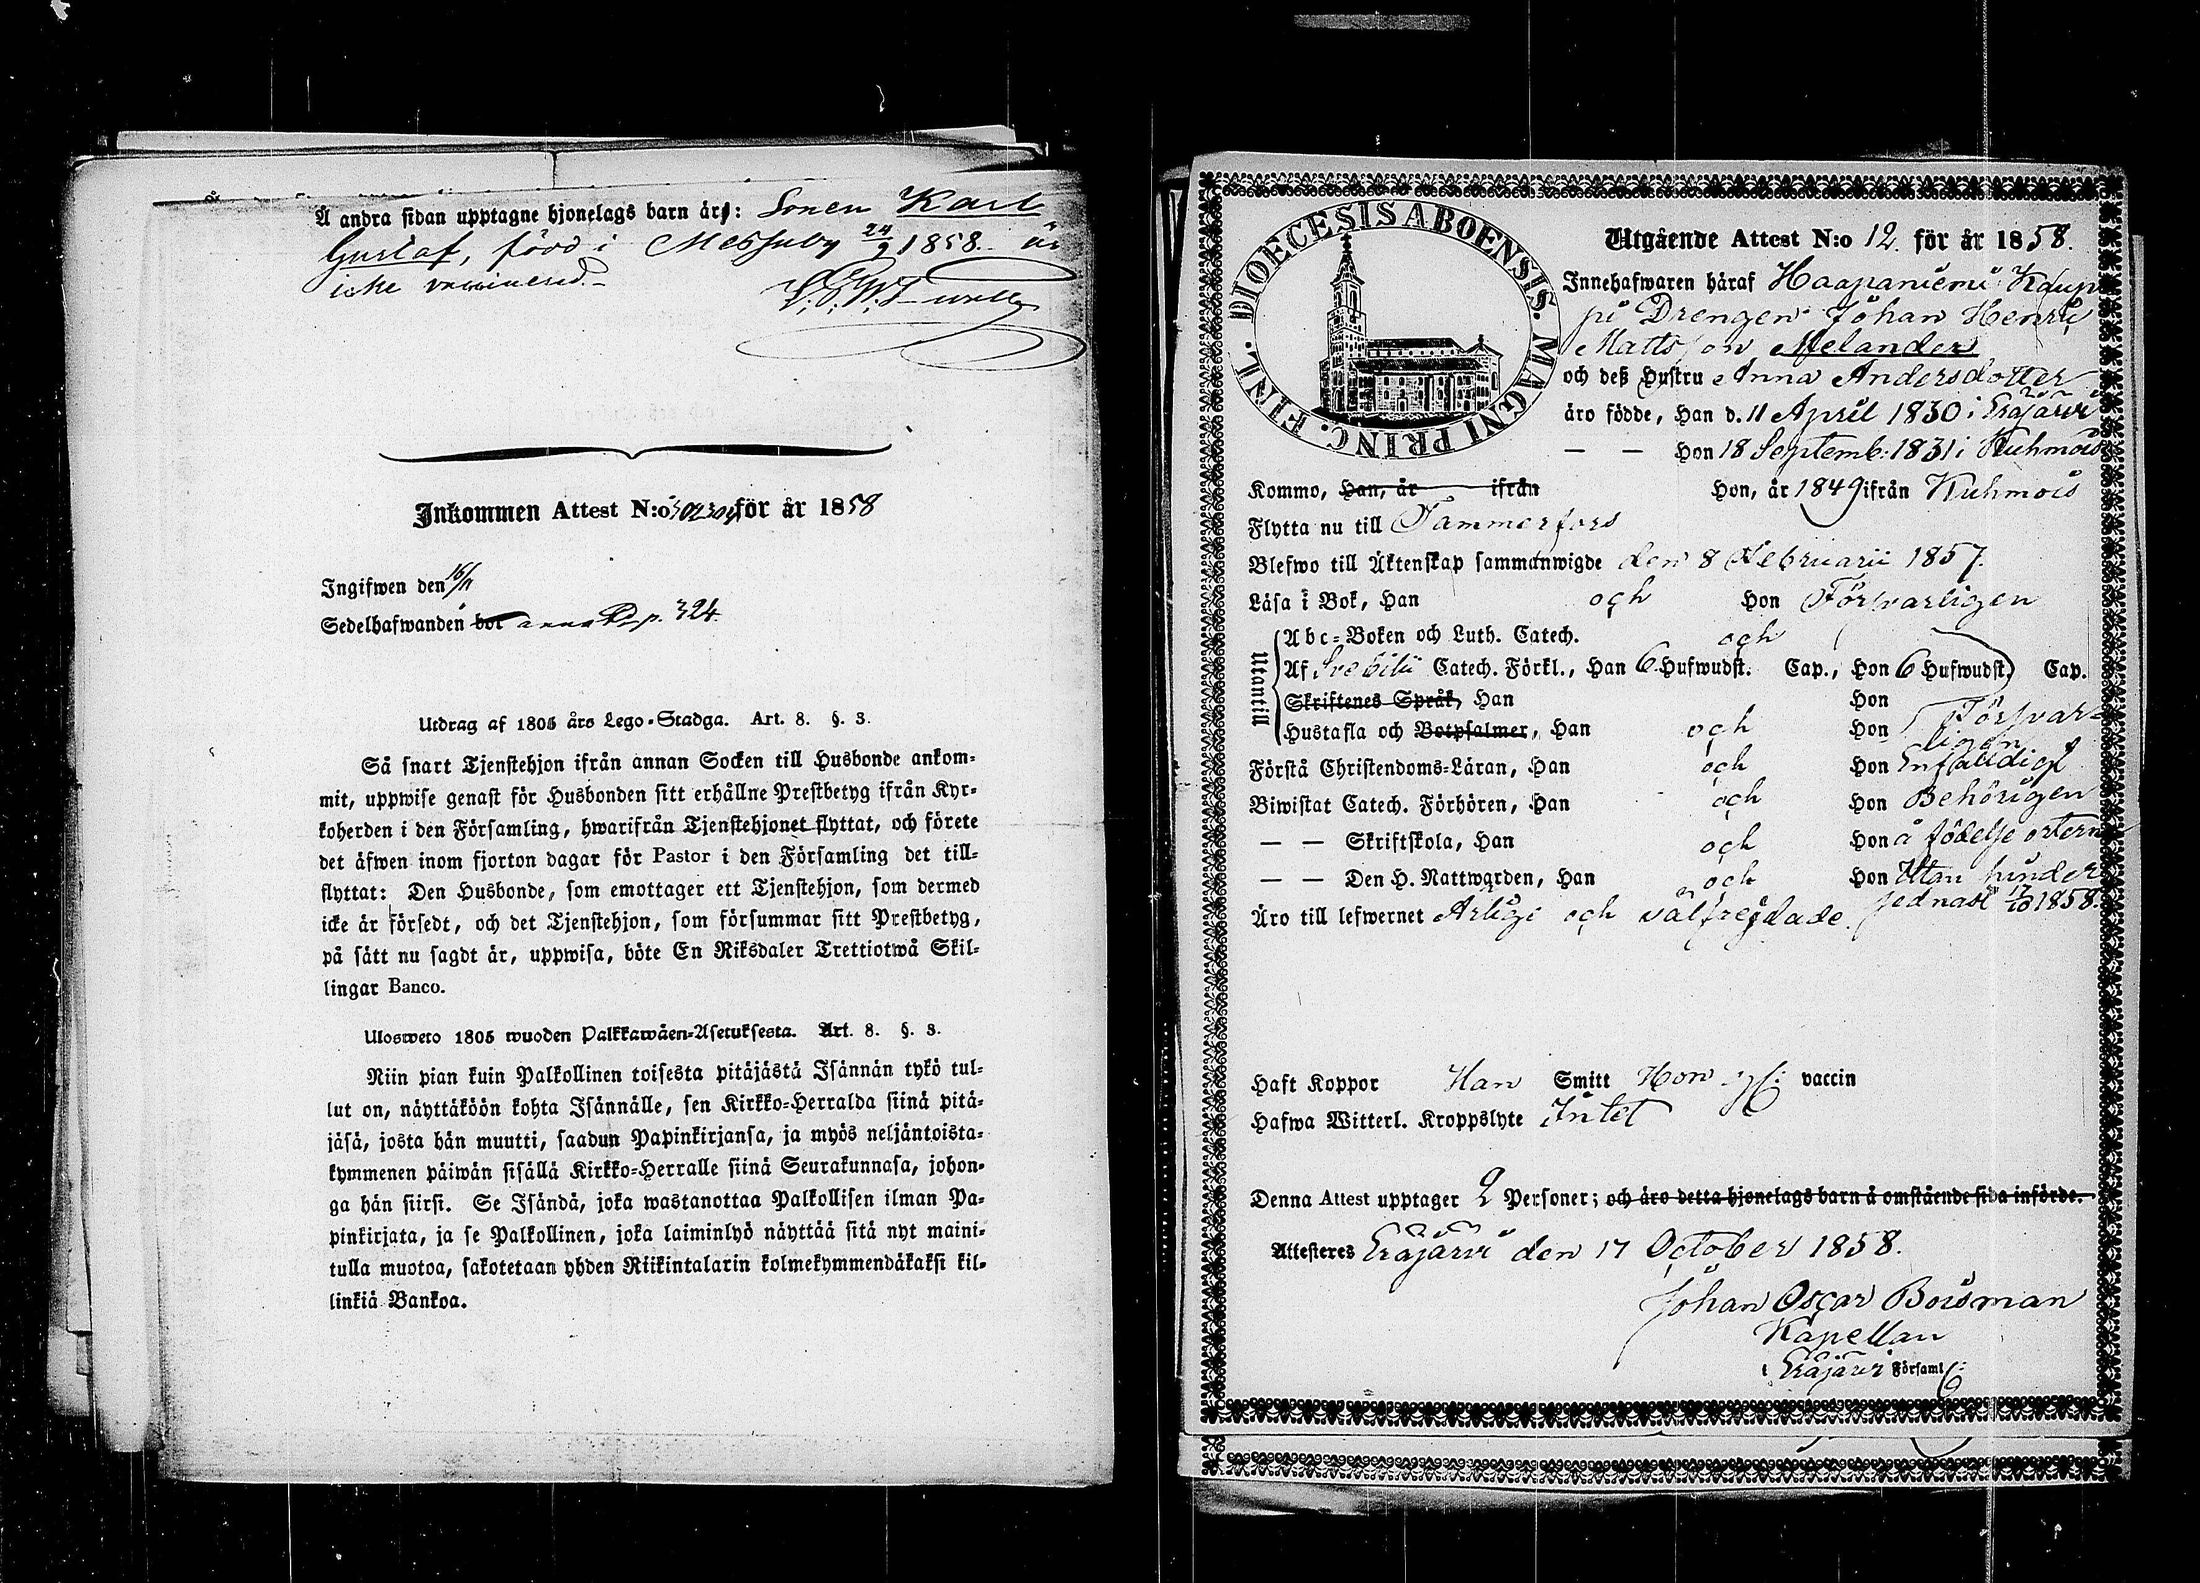 Å andra sidan upptagne hjonelags barn är: Sonen Karl
Gustaf, född i Messuby 24/9 1858. är
icke vaccinerad.
Inkommen Attest N:o för år 1858
Ingifwen den 16/11
Sedelhafwanden bor p. 324.
Utdrag af 1805 års Lego-Stadga. Art. 8. §. 3.
Så snart Tjenstehjon ifrån annan Socken till Husbonde ankom-
mit, uppwise genast för Husbonden sitt erhållne Prestbetyg ifrån Kyr-
koherden i den Församling, hwarifrån Tjenstehjonet flyttat, och förete
det äfwen inom fjorton dagar för Pastor i den Församling det till-
flyttat: Den Husbonde, som emottager ett Tjenstehjon, som dermed
icke är försedt, och det Tjenstehjon, som försummar sitt Prestbetyg,
på sätt nu sagdt är, uppwisa, böte En Riksdaler Trettiotwå Skil-
lingar Banco.
Ulosweto 1805 wuoden Palkkawäen-Asetuksesta. Art. 8. §. 3.
Niin pian kuin Palkollinen toisesta pitäjästä Isännän tykö tul-
lut on, näyttäköön kohta Isännälle, sen Kirkko-Herralda siinä pitä-
jäsä, josta hän muutti, saadun Papinkirjansa, ja myös neljäntoista-
kymmenen päiwän sisällä Kirkko-Herralle siinä Seurakunnasa, johon-
ga hän siirsi. Se Isändä, joka wastanottaa Palkollisen ilman Pa-
pinkirjata, ja se Palkollinen, joka laiminlyö näyttää sitä nyt maini-
tulla muotoa, sakotetaan yhden Riikintalarin kolmekymmendäkaksi kil-
linkiä Bankoa.
DIOECESIS ABOENSIS. MAGNI PRINC. FINL.
Utgående Attest N:o 12. för år 1858.
Innehafwaren häraf Haapaniemi Kaup
pi Drengen Johan Henric
Mattsson Melander
och deß Hustru Anna Andersdotter
äro födde, Han d. 11 April 1830 i Eräjärvi
— — Hon 18 Septemb: 1831 i Kuhmois
Kommo, Han, år ifrån Hon, år 1849 ifrån Kuhmois
Flytta nu till Tammerfors
Blefwo till Äktenskap sammanwigde den 8 Februarii 1857.
Läsa i Bok, Han och Hon Försvarligen
Utantill
Abc-Boken och Luth. Catech. och
Af Svebilii Catech. Förkl., Han 6 Hufwudst. Cap., Hon 6 Hufwudst. Cap.
Skriftenes Språk, Han Hon
Hustafla och Botpsalmer, Han och Hon Försvar-
ligen
Förstå Christendoms-Läran, Han och Hon Enfaldigt
Biwistat Catech. Förhören, Han och Hon Behörigen
— — Skriftskola, Han och Hon å födelse orterne
— — Den H. Nattwarden, Han och Hon Utan hinder
sednast 17/10 1858.
Äro till lefwernet Ärlige och välfrejdade.
Haft Koppor Han Smitt Hon vaccin
Hafwa Witterl. Kroppslyte Intet
Denna Attest upptager 2 Personer; och äro detta hjonelags barn å omstående sida införde.
Attesteres Eräjärvi den 17 October 1858.
Johan Oscar Boisman
Kapellan
i Eräjärvi Församl: